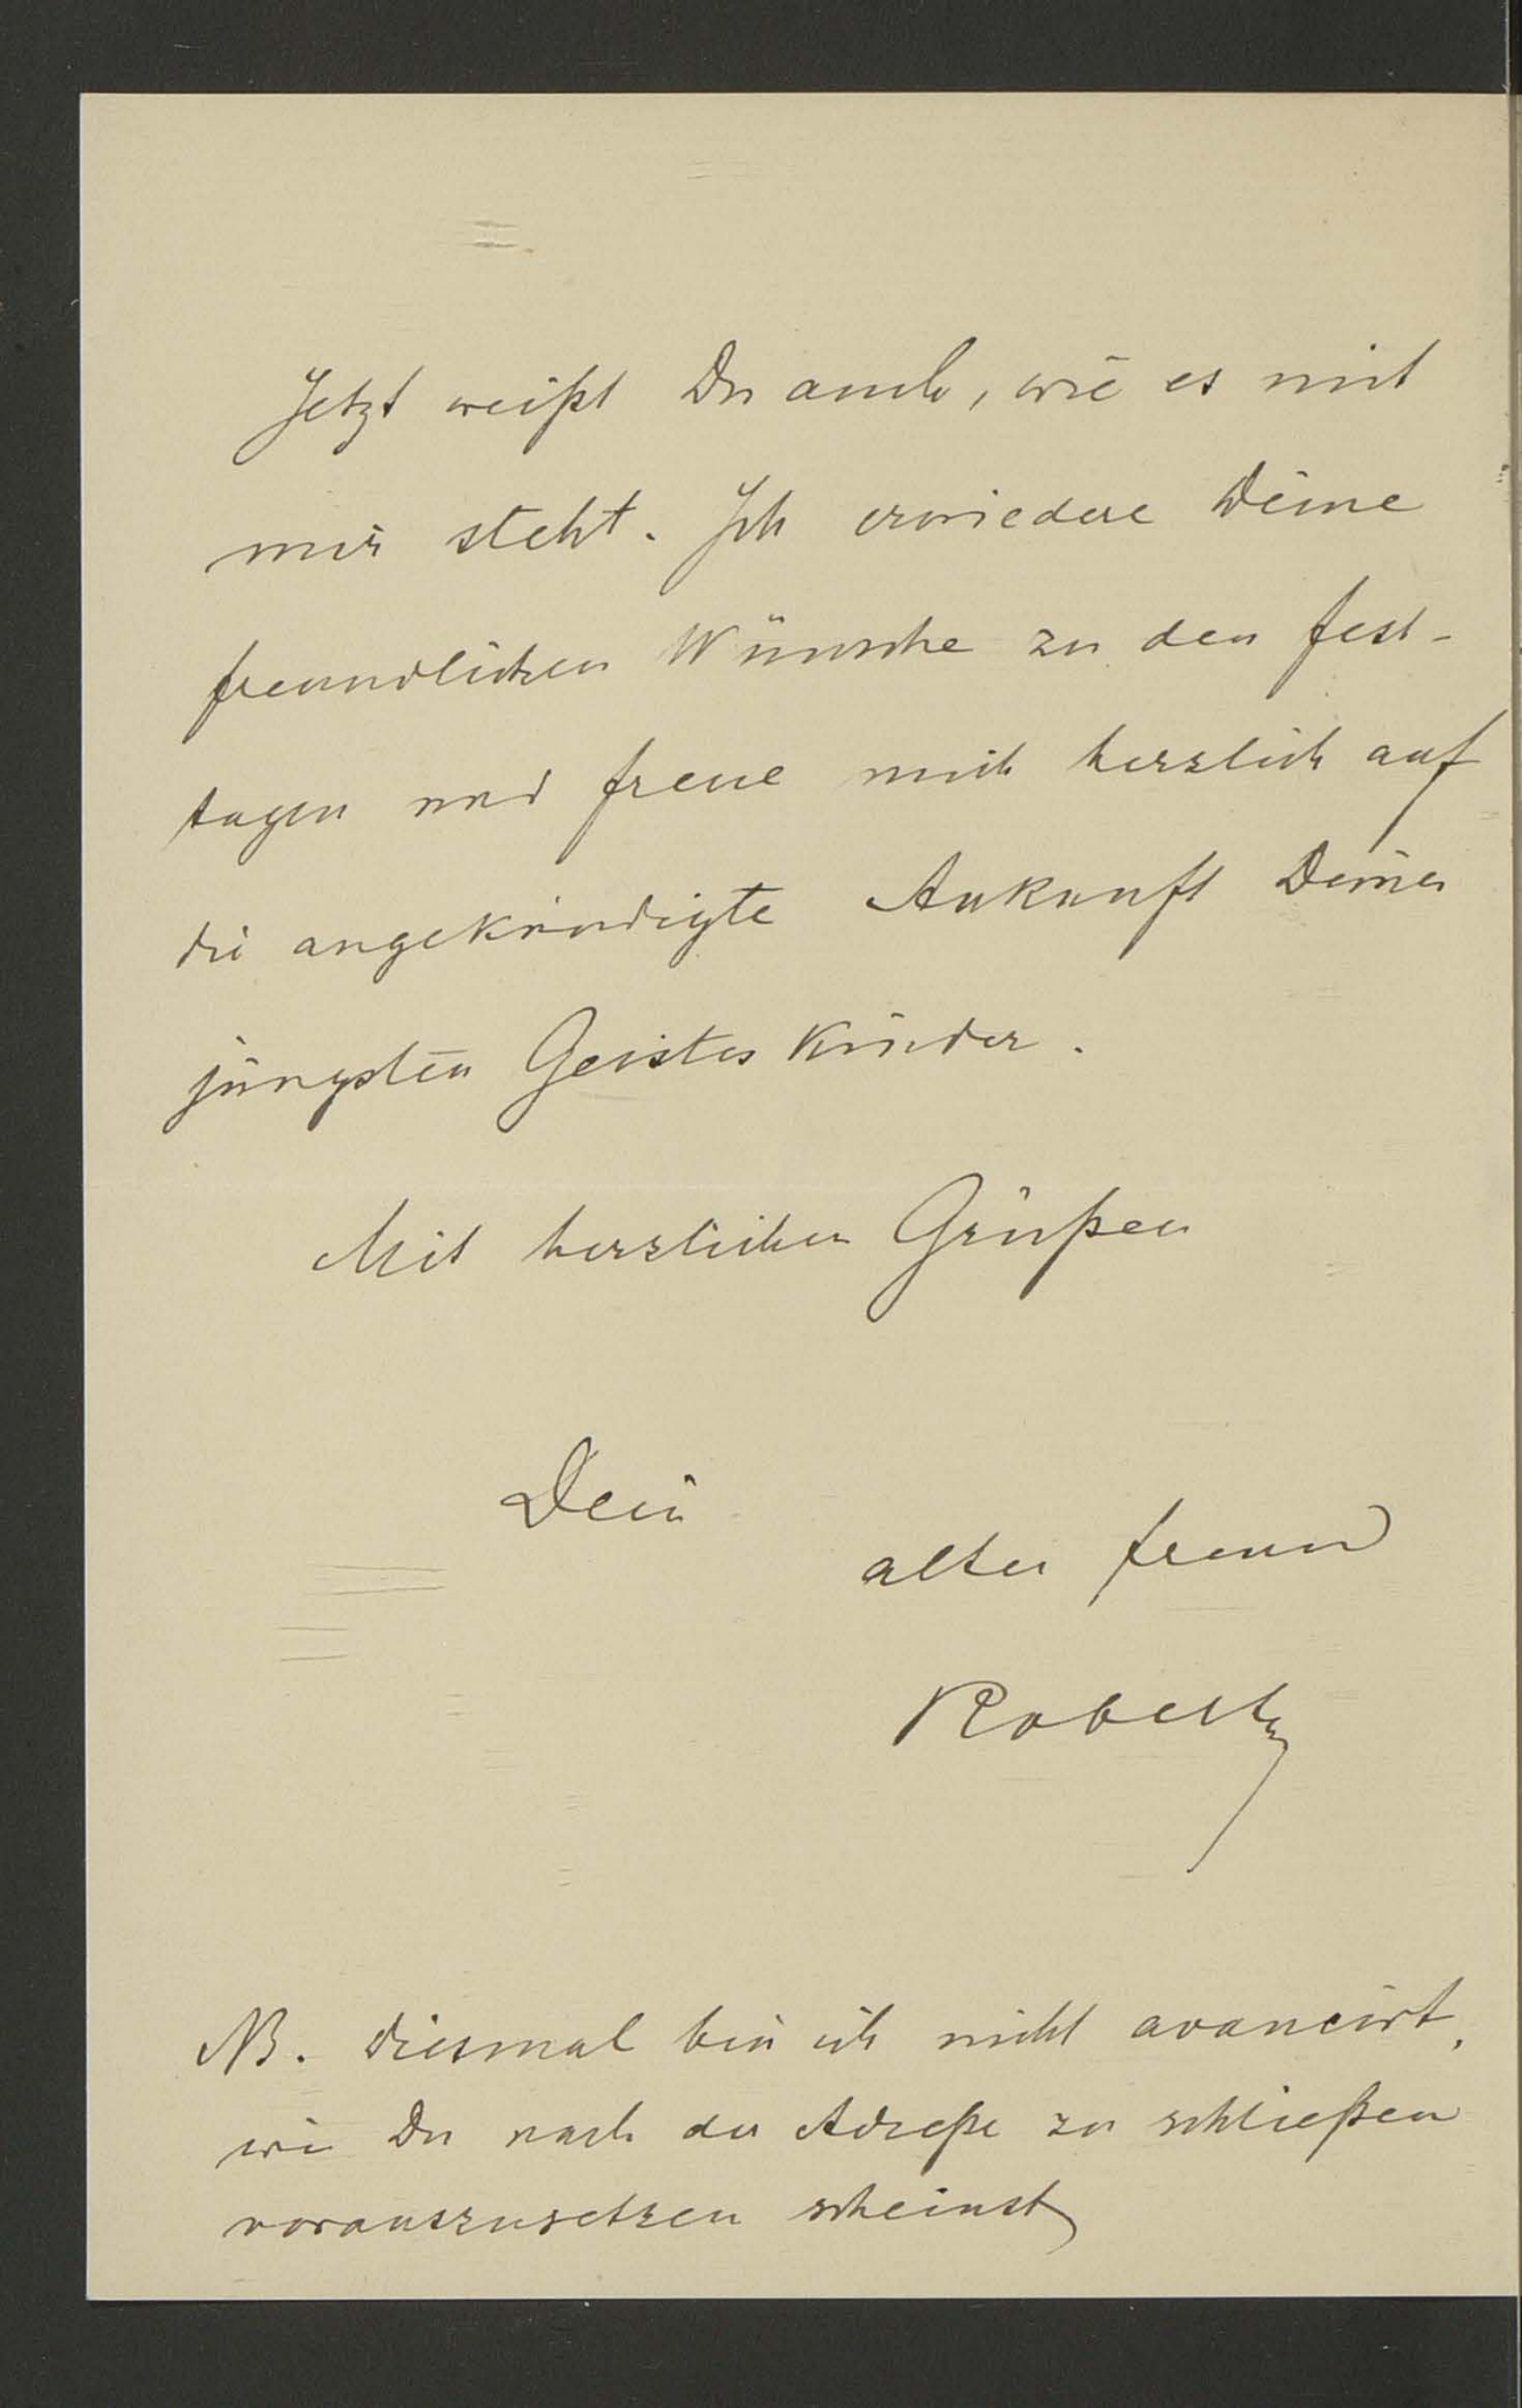 Jetzt weißt Du auch, wie es mit
mir steht. Ich erwiedere Deine
freundlichen Wünsche zu den Fest-
tagen und freue mich herzlich auf
die angekündigte Ankunft Deiner
jüngsten Geisteskinder.
Mit herzlichen Grüßen
Dein
alter Freund
Robert
NB. Diesmal bin ich nicht avancirt,
wie Du nach der Adreße zu schließen
vorauszusetzen scheinst